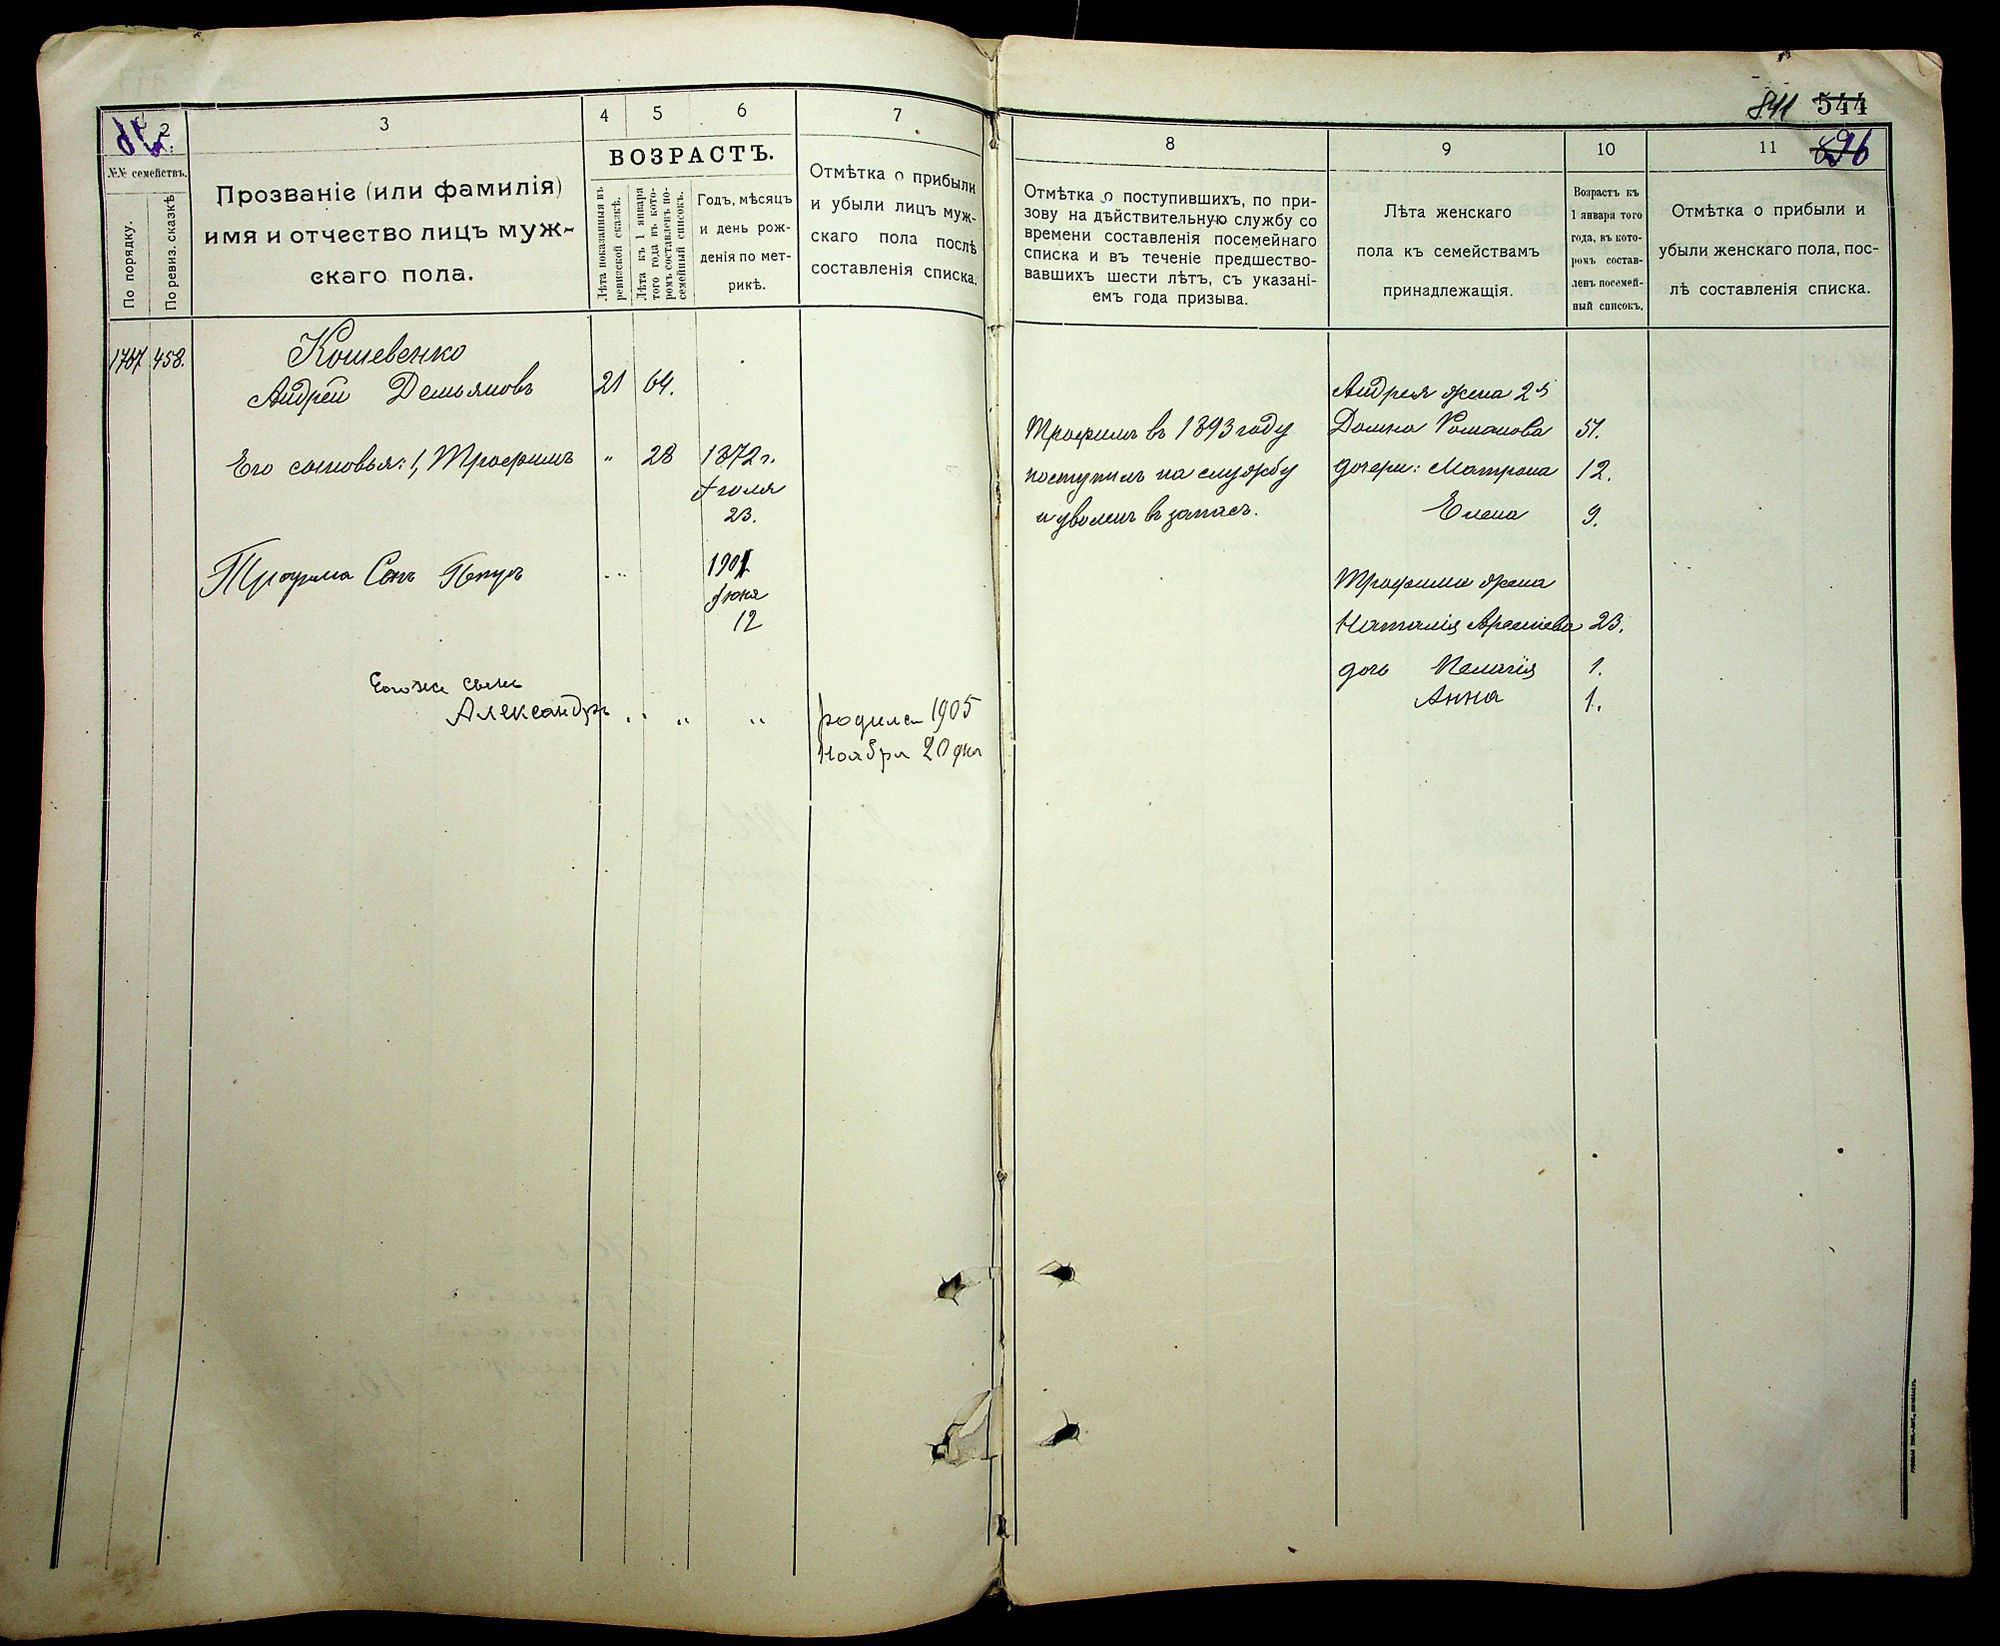 841 544
896
2
3
4
5
6
7
№№ семействъ.
По порядку.
По ревиз. сказкѣ
Прозваніе (или фамилія)
имя и отчество лицъ муж-
скаго пола.
ВОЗРАСТЪ.
Лѣта показанныя въ
ревизской сказкѣ.
Лѣта къ 1 января
того года въ кото-
ромъ составленъ по-
семейный списокъ.
Годъ, мѣсяцъ
и день рож-
денія по мет-
рикѣ.
Отмѣтка о прибыли
и убыли лицъ муж-
скаго пола послѣ
составленія списка.
8
9
10
11
Отмѣтка о поступившихъ, по при-
зову на дѣйствительную службу со
времени составленія посемейнаго
списка и въ теченіе предшество-
вавшихъ шести лѣтъ, съ указані-
емъ года призыва.
Лѣта женскаго
пола къ семействамъ
принадлежащія.
Возрастъ къ
1 января того
года, въ кото-
ромъ состав-
ленъ посемей-
ный списокъ.
Отмѣтка о прибыли и
убыли женскаго пола, пос-
лѣ составленія списка.
1707 458.
Кошевенко
Андрей Демьяновъ 21 64.
Его сыновья: 1, Трофимъ " 28 1872 г.
Іюля
23.
Трофима Сынъ Петръ 1901
Іюня
12
Его же сынъ
Александръ " " " родился 1905
Ноября 20 дня
Трофимъ въ 1893 году
поступилъ на службу
и уволенъ въ запасъ.
Андрея жена 2я
Домна Романова 51.
дочери: Матрона 12.
Елена 9.
Трофима жена
Наталія 23.
дочь Пелагія 1.
Анна 1.